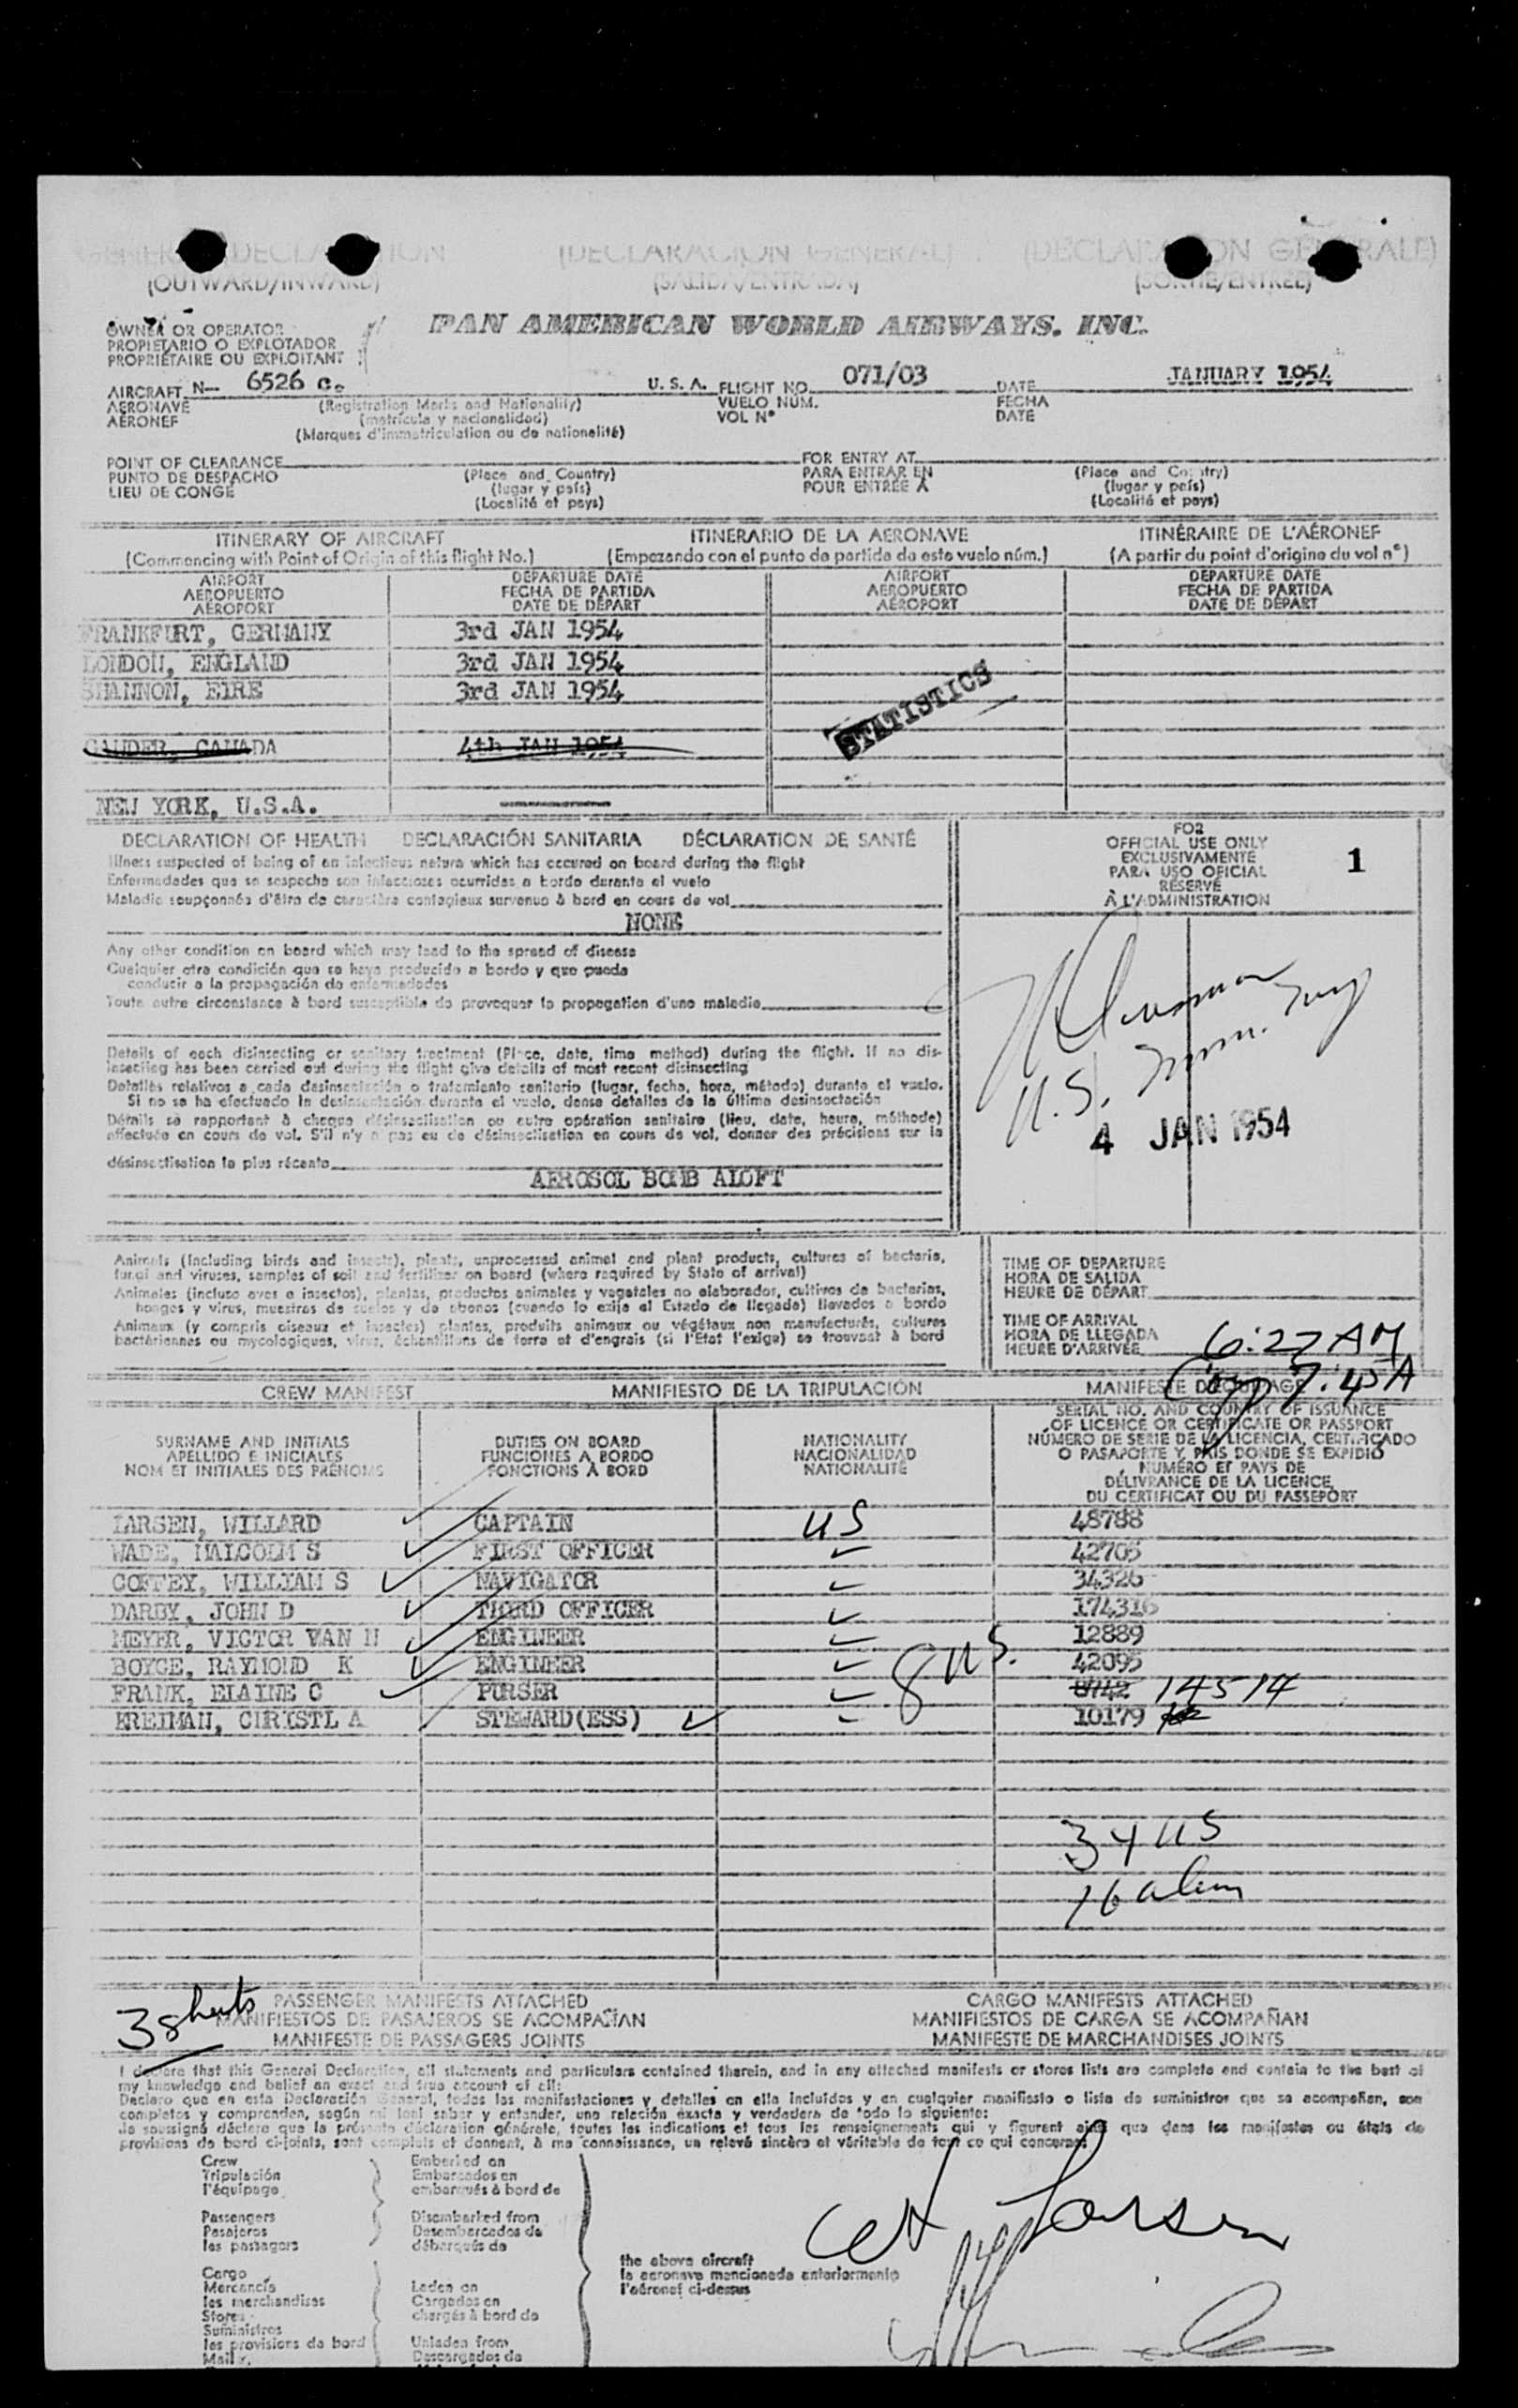 GENERAL DECLARATION (DECLARACION GENERAL) (DECLARATION GENERALE)
(OUTWARD/INWARD) (SALIDA/ENTRADA) (SORTIE/ENTREE)
OWNER OR OPERATOR
PROPIETARIO O EXPLOTADOR
PROPRIÉTAIRE OU EXPLOITANT
PAN AMERICAN WORLD AIRWAYS, INC.
AIRCRAFT N— 6526 C. U. S. A. FLIGHT NO. 071/03 DATE JANUARY 1954
AERONAVE (Registration Marks and Nationality) VUELO NÚM. FECHA
AÉRONEF (matrícula y nacionalidad) VOL Nº DATE
(Marques d'immatriculation ou de nationalité)
POINT OF CLEARANCE FOR ENTRY AT
PUNTO DE DESPACHO (Place and Country) PARA ENTRAR EN (Place and Country)
LIEU DE CONGÉ (lugar y país) POUR ENTRÉE À (lugar y país)
(Localité et pays) (Localité et pays)
ITINERARY OF AIRCRAFT ITINERARIO DE LA AERONAVE ITINÉRAIRE DE L'AÉRONEF
(Commencing with Point of Origin of this flight No.) (Empezando con el punto de partida de este vuelo núm.) (A partir du point d'origine du vol nº)
AIRPORT DEPARTURE DATE AIRPORT DEPARTURE DATE
AEROPUERTO FECHA DE PARTIDA AEROPUERTO FECHA DE PARTIDA
AÉROPORT DATE DE DÉPART AÉROPORT DATE DE DÉPART
FRANKFURT, GERMANY 3rd JAN 1954
LONDON, ENGLAND 3rd JAN 1954
SHANNON, EIRE 3rd JAN 1954
STATISTICS
GANDER, CANADA 4th JAN 1954
NEW YORK, U.S.A.
DECLARATION OF HEALTH DECLARACIÓN SANITARIA DÉCLARATION DE SANTÉ
Illness suspected of being of an infectious nature which has occured on board during the flight
Enfermedades que se sospecha son infecciosas ocurridas a bordo durante el vuelo
Maladie soupçonnés d'être de caractère contagieux survenue à bord en cours de vol
NONE
FOR
OFFICIAL USE ONLY
EXCLUSIVAMENTE
PARA USO OFICIAL
RÉSERVÉ
À L'ADMINISTRATION
1
Any other condition on board which may lead to the spread of disease
Cualquier otra condición que se haya producido a bordo y que pueda
conducir a la propagación de enfermedades
Toute autre circonstance à bord susceptible de provoquer la propagation d'une maladie
Details of each disinsecting or sanitary treatment (Place, date, time method) during the flight. If no dis-
insecting has been carried out during the flight give details of most recent disinsecting
Detalles relativos a cada desinsectación o tratamiento sanitario (lugar, fecha, hora, método) durante el vuelo.
Si no se ha efectuado la desinsectación durante el vuelo, dense detalles de la última desinsectación
Détails se rapportant à chaque désinsectisation ou autre opération sanitaire (lieu, date, heure, méthode)
effectuée en cours de vol. S'il n'y a pas eu de désinsectisation en cours de vol, donner des précisions sur la
désinsectisation la plus récente
AEROSOL BOMB ALOFT
U.S. Imm.
4 JAN 1954
Animals (Including birds and insects), plants, unprocessed animal and plant products, cultures of bacteria,
fungi and viruses, samples of soil and fertilizer on board (where required by State of arrival)
Animales (incluso aves e insectos), plantas, productos animales y vegetales no elaborados, cultivos de bacterias,
hongos y virus, muestras de suelos y de abonos (cuando lo exija el Estado de llegada) llevados a bordo
Animaux (y compris oiseaux et insectes) plantes, produits animaux ou végétaux non manufacturés, cultures
bactériennes ou mycologiques, virus, échantillons de terre et d'engrais (si l'Etat l'exige) se trouvant à bord
TIME OF DEPARTURE
HORA DE SALIDA
HEURE DE DÉPART
TIME OF ARRIVAL
HORA DE LLEGADA
HEURE D'ARRIVÉE 6:27 AM
7:45A
CREW MANIFEST MANIFIESTO DE LA TRIPULACIÓN MANIFESTE D'ÉQUIPAGE
SURNAME AND INITIALS
APELLIDO E INICIALES
NOM ET INITIALES DES PRÉNOMS
DUTIES ON BOARD
FUNCIONES A BORDO
FONCTIONS À BORD
NATIONALITY
NACIONALIDAD
NATIONALITÉ
SERIAL NO. AND COUNTRY OF ISSUANCE
OF LICENCE OR CERTIFICATE OR PASSPORT
NÚMERO DE SERIE DE LA LICENCIA, CERTIFICADO
O PASAPORTE Y PAÍS DONDE SE EXPIDIÓ
NUMÉRO ET PAYS DE
DÉLIVRANCE DE LA LICENCE,
DU CERTIFICAT OU DU PASSEPORT
LARSEN, WILLARD CAPTAIN US 48788
WADE, MALCOLM S FIRST OFFICER 42705
COFFEY, WILLIAM S NAVIGATOR 34326
DARBY, JOHN D THIRD OFFICER 174316
MEYER, VICTOR VAN N ENGINEER 12889
BOYCE, RAYMOND K ENGINEER 8 US. 42095
FRANK, ELAINE C PURSER 8742 14514
KREIMAN, CHRISTL A STEWARD(ESS) 10179
34 US
16 alien
3 sheets
PASSENGER MANIFESTS ATTACHED CARGO MANIFESTS ATTACHED
MANIFIESTOS DE PASAJEROS SE ACOMPAÑAN MANIFIESTOS DE CARGA SE ACOMPAÑAN
MANIFESTE DE PASSAGERS JOINTS MANIFESTE DE MARCHANDISES JOINTS
I declare that this General Declaration, all statements and particulars contained therein, and in any attached manifests or stores lists are complete and contain to the best of
my knowledge and belief an exact and true account of all:
Declaro que en esta Declaración General, todas las manifestaciones y detalles en ella incluidos y en cualquier manifiesto o lista de suministros que se acompañan, son
completos y comprenden, según mi leal saber y entender, una relación exacta y verdadera de todo lo siguiente:
Je soussigné déclare que la présente déclaration générale, toutes les indications et tous les renseignements qui y figurent ainsi que dans les manifestes ou états de
provisions de bord ci-joints, sont complets et donnent, à ma connaissance, un relevé sincère et véritable de tout ce qui concerne:
Crew
Tripulación
l'équipage
Passengers
Pasajeros
les passagers
Cargo
Mercancía
les merchandises
Stores
Suministros
les provisions de bord
Mail
Embarked on
Embarcados en
embarqués à bord de
Disembarked from
Desembarcados de
débarqués de
Laden on
Cargados en
chargés à bord de
Unladen from
Descargados de
the above aircraft
la aeronave mencionada anteriormente
l'aéronef ci-dessus
Larsen